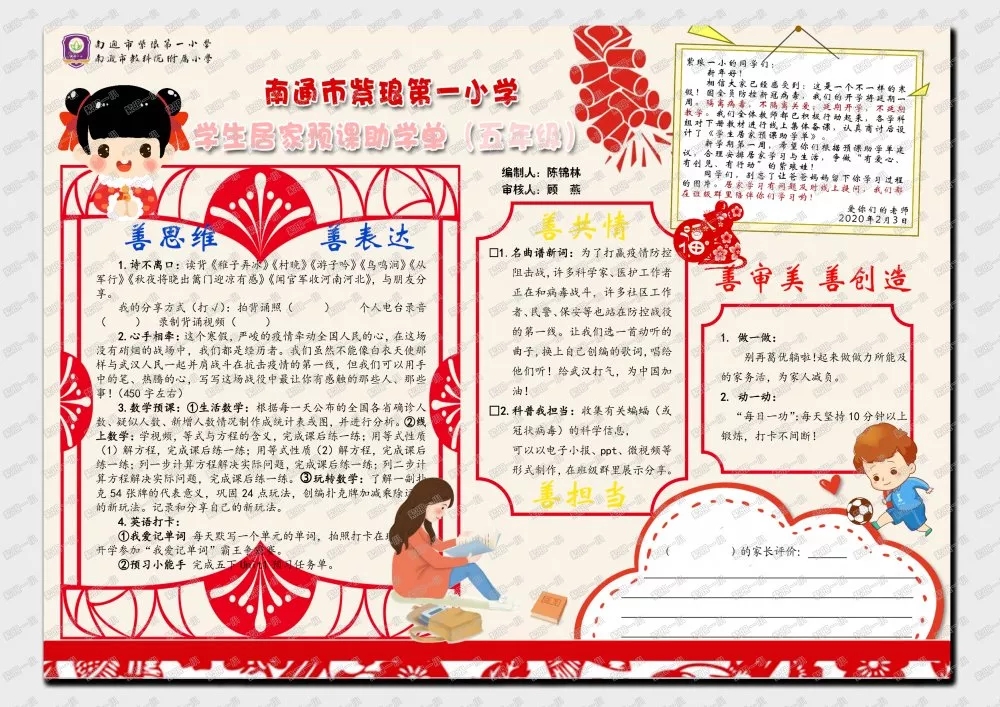 南通市紫琅第一小学
南通市教科院附属小学
南通市紫琅第一小学
学生居家预课助学单（五年级）
编制人：陈锦林
审核人：顾 燕
紫琅一小的同学们：
新年好！
相信大家已经感受到：这是一个不一样的寒
假！因全员防控新冠病毒，我们的开学将延期一
周。隔离病毒，不隔离关爱；延期开学，不延期
教学。我们全体教师都已积极行动起来，各学科
组对下册教材进行线上集体备课，认真商讨后设
计了《学生居家预课助学单》。
新学期第一周，希望你们根据预课助学单建
议，合理安排居家学习与生活，争做“有爱心、
有创见、有行动”的紫琅娃！
同学们，别忘了让爸爸妈妈留下你学习过程
的图片。居家学习有问题及时线上提问，我们都
在班级群里陪伴你们学习哟！
爱你们的老师
2020年2月3日
善思维 善表达
1.诗不离口：读背《稚子弄冰》《村晚》《游子吟》《鸟鸣涧》《从
军行》《秋夜将晓出篱门迎凉有感》《闻官军收河南河北》，与朋友分
享。
我的分享方式（打√）：拍背诵照（ ） 个人电台录音
（ ） 录制背诵视频（ ）
2.心手相牵：这个寒假，严峻的疫情牵动全国人民的心，在这场
没有硝烟的战场中，我们都是经历者。我们虽然不能像白衣天使那
样与武汉人民一起并肩战斗在抗击疫情的第一线，但我们可以用手
中的笔、热腾的心，写写这场战役中最让你有感触的那些人、那些
事！(450字左右)
3.数学预课：①生活数学：根据每一天公布的全国各省确诊人
数、疑似人数、新增人数情况制作成统计表或图，并进行分析。②线
上数学：学视频，等式与方程的含义，完成课后练一练；用等式性质
（1）解方程，完成课后练一练；用等式性质（2）解方程，完成课后
练一练；列一步计算方程解决实际问题，完成课后练一练；列二步计
算方程解决实际问题，完成课后练一练。③玩转数学：了解一副扑
克54张牌的代表意义，巩固24点玩法，创编扑克牌加减乘除运
的新玩法。记录和分享自己的新玩法。
4.英语打卡：
①我爱记单词 每天默写一个单元的单词，拍照打卡在
开学参加“我爱记单词”霸王争 赛。
②预习小能手 完成五下 预习任务单。
善共情
□1.名曲谱新词：为了打赢疫情防控
阻击战，许多科学家、医护工作者
正在和病毒战斗，许多社区工作
者、民警、保安等也站在防控战役
的第一线。让我们选一首动听的
曲子，换上自己创编的歌词，唱给
他们听！给武汉打气，为中国加
油！
□2.科普我担当：收集有关蝙蝠（或
冠状病毒）的科学信息，
可以以电子小报、ppt、微视频等
形式制作，在班级群里展示分享。
善担当
福
善审美 善创造
1. 做一做：
别再葛优躺啦！起来做做力所能及
的家务活，为家人减负。
2. 动一动：
“每日一功”：每天坚持10分钟以上
锻炼，打卡不间断！
（ ）的家长评价：